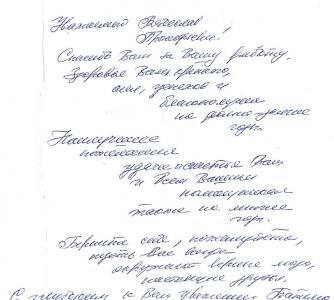 Уважаемый Святослав
Прокофьевич!
Спасибо Вам за Вашу работу,
Здоровья Вам крепкого,
сил, успехов и
благополучия
на долгие-долгие
годы.
Наилучшие
пожелания
удачи и счастья Вам
и Всем Вашим
помощникам
также на многие
годы.
Берегите себя, пожалуйста,
пусть Вас всегда
окружают верные люди,
настоящие друзья.
С глубоким к Вам уважением